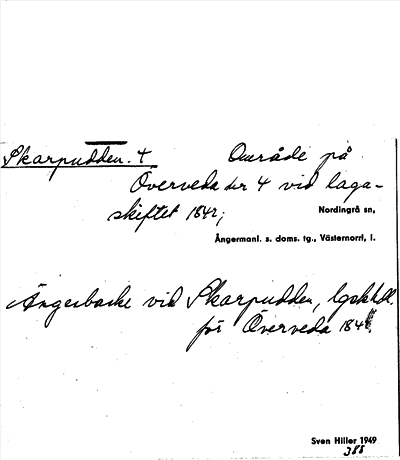 Skarpudden. +
Område på
Överveda nr 4 vid laga-
skiftet 1842;
Nordingrå sn,
Ångermanl. s. doms. tg., Västernorrl, l.
Ängesbacke vid Skarpudden, lgskhdl.
för Överveda
Sven Hiller 1949
388